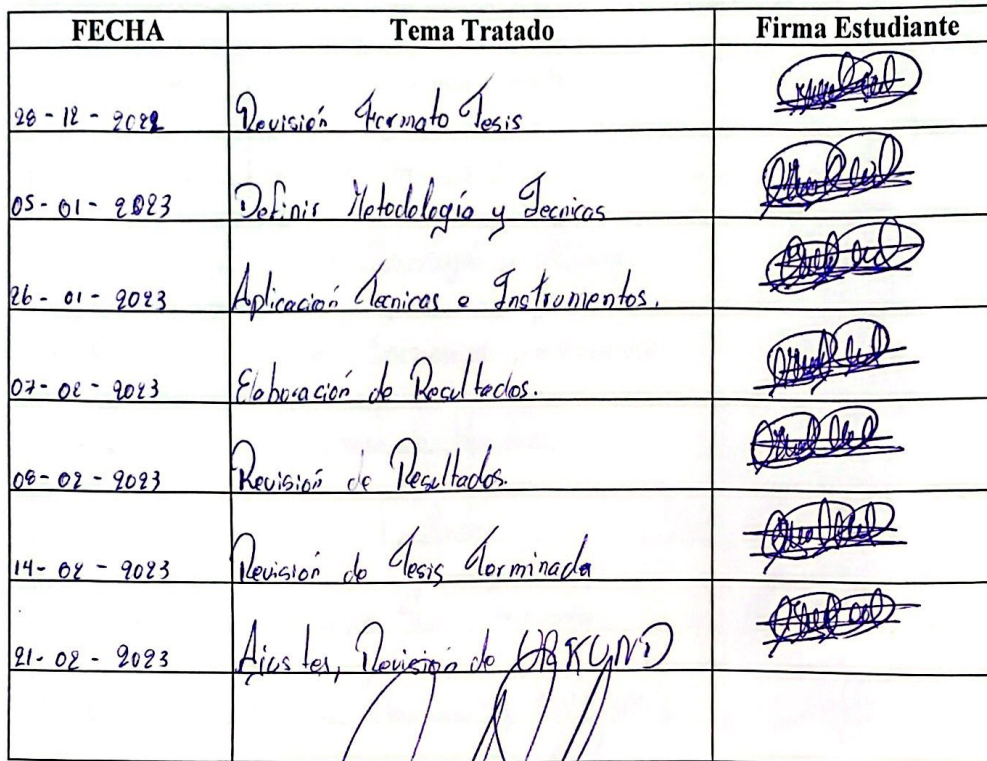 FECHA Tema Tratado Firma Estudiante
28 - 12 - 2022 Revisión Formato Tesis
05 - 01 - 2023 Definir Metodología y Tecnicas
26 - 01 - 2023 Aplicación Tecnicas e Instrumentos.
07 - 02 - 2023 Elaboración de Resultados.
08 - 02 - 2023 Revisión de Resultados.
14 - 02 - 2023 Revisión de Tesis Terminada
21 - 02 - 2023 Ajustes, Revisión de URKUND